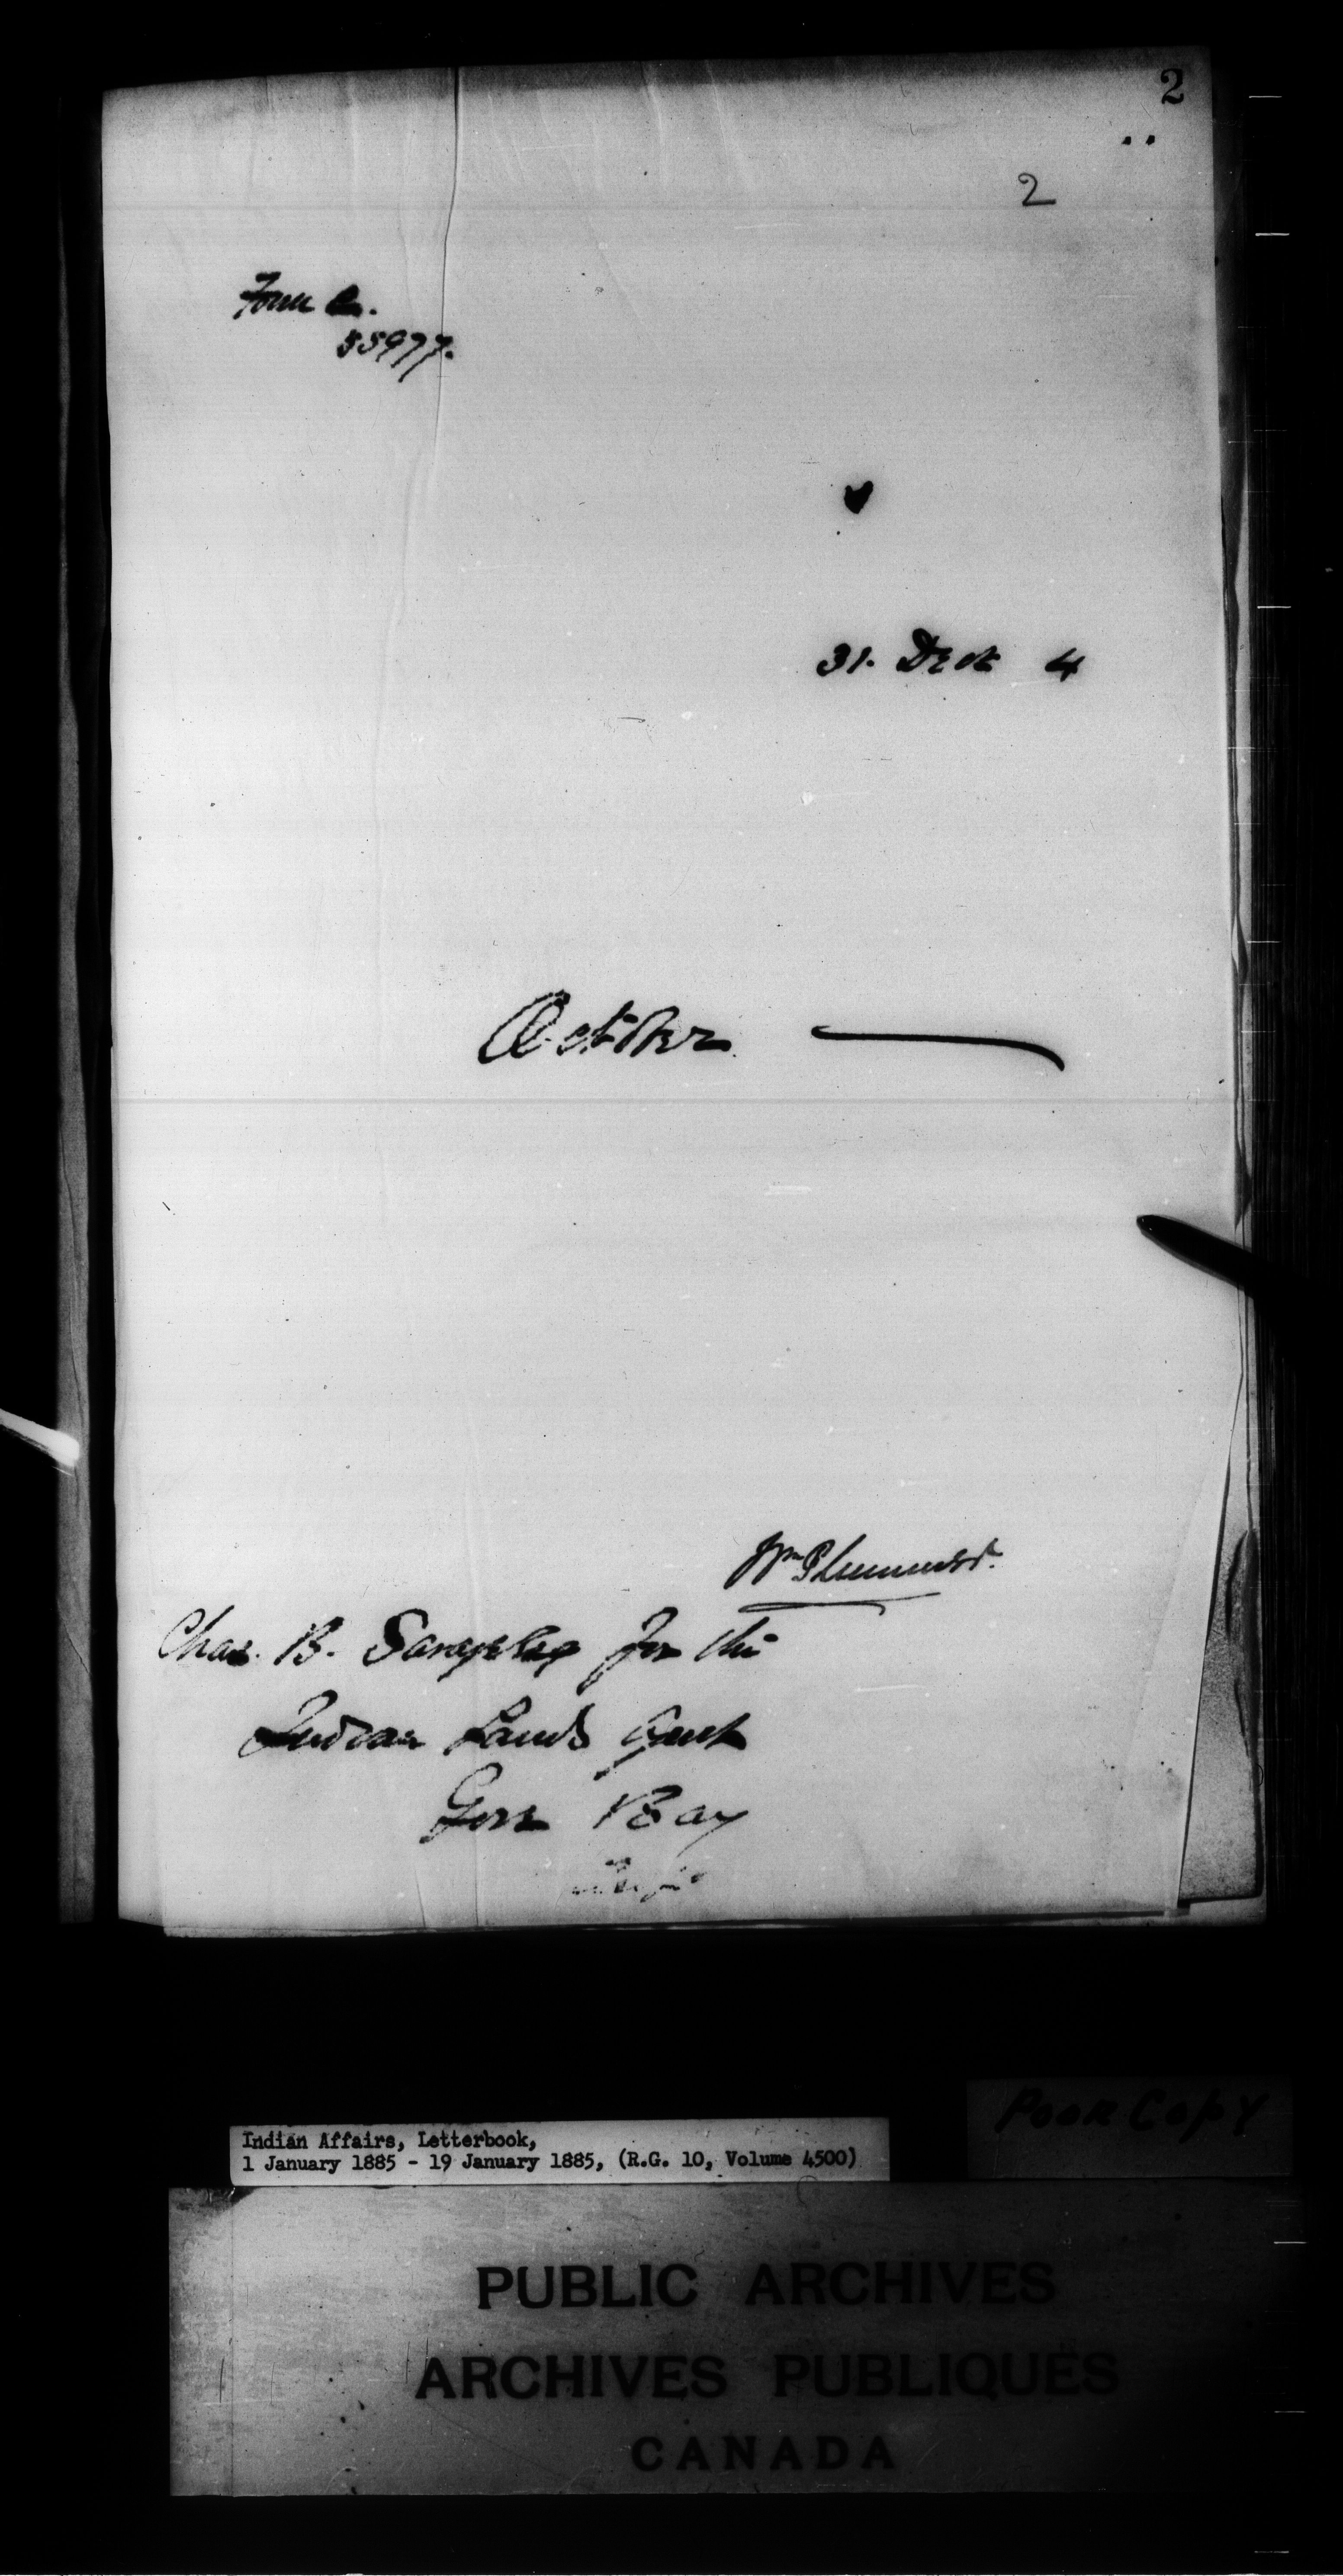 2
2
Form C.
55977.
31. Dec 4
October
Wm Plummer.
Chas. B. Savage for the
Indian Lands Agent
Gore Bay
Poor Copy
Indian Affairs, Letterbook,
1 January 1885 - 19 January 1885, (R.G. 10, Volume 4500)
PUBLIC ARCHIVES
ARCHIVES PUBLIQUES
CANADA